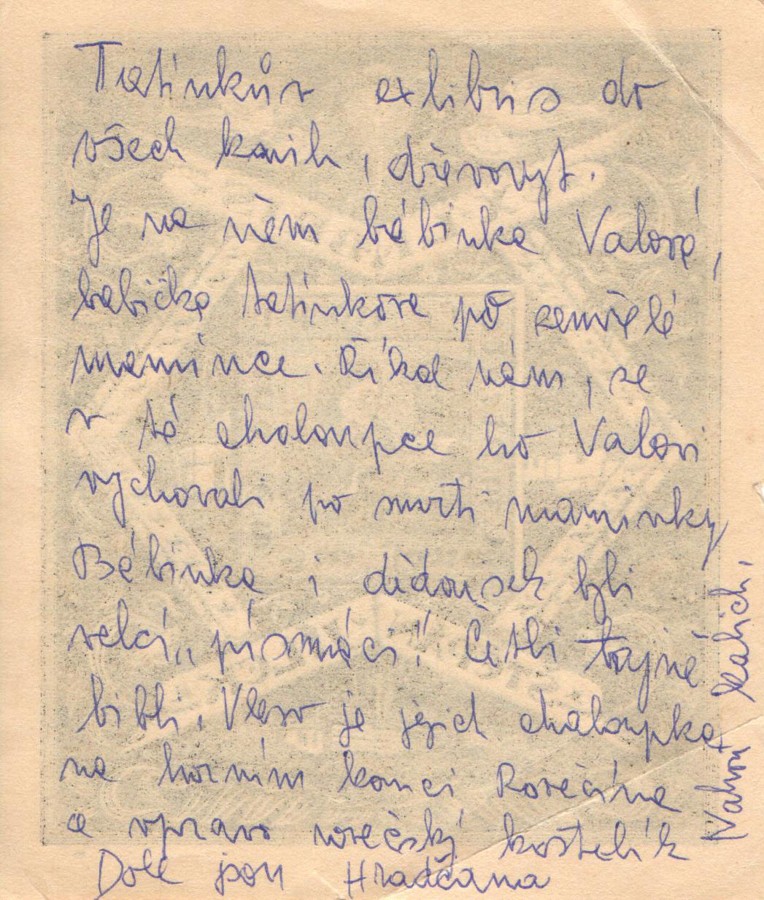 Tatínkův exlibris do
všech knih, dřevoryt.
Je na něm bábinka Valová,
babička tatínkova po zemřelé
mamince. Říkal nám, že
v té chaloupce ho Valovi
vychovali po smrti maminky
Bábinka i dědoušek byli
velcí „písmáci". Četli tajně
bibli. Vlevo je jejich chaloupka
na horním konci Rovečína
a vpravo rovečský kostelík
Dole jsou Hradčana
Nahoře kalich.